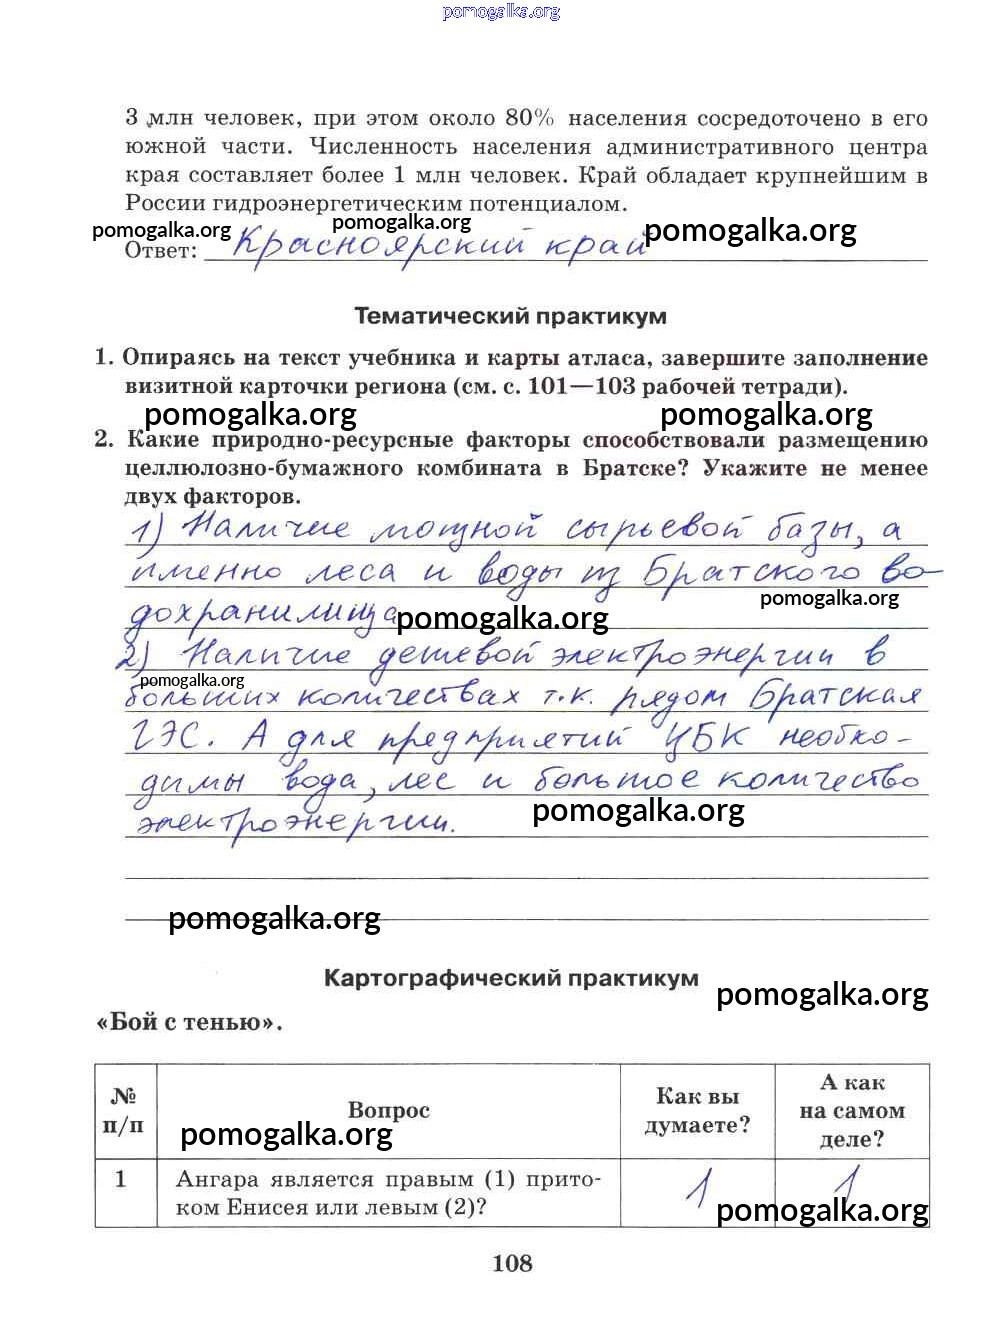 pomogalka.org
3 млн человек, при этом около 80% населения сосредоточено в его
южной части. Численность населения административного центра
края составляет более 1 млн человек. Край обладает крупнейшим в
России гидроэнергетическим потенциалом.
pomogalka.org pomogalka.org pomogalka.org
Ответ: Красноярский край
Тематический практикум
1. Опираясь на текст учебника и карты атласа, завершите заполнение
визитной карточки региона (см. с. 101—103 рабочей тетради).
pomogalka.org pomogalka.org
2. Какие природно-ресурсные факторы способствовали размещению
целлюлозно-бумажного комбината в Братске? Укажите не менее
двух факторов.
1) Наличие мощной сырьевой базы, а
именно леса и воды из Братского во-
pomogalka.org
дохранилища
pomogalka.org
2) Наличие дешевой электроэнергии в
pomogalka.org
больших количествах т.к. рядом Братская
ГЭС. А для предприятий ЦБК необхо-
димы вода, лес и большое количество
pomogalka.org
электроэнергии.
pomogalka.org
Картографический практикум
pomogalka.org
«Бой с тенью».
№ п/п
Вопрос
Как вы думаете?
А как на самом деле?
pomogalka.org
1 Ангара является правым (1) прито- 1 1
ком Енисея или левым (2)?
pomogalka.org
108